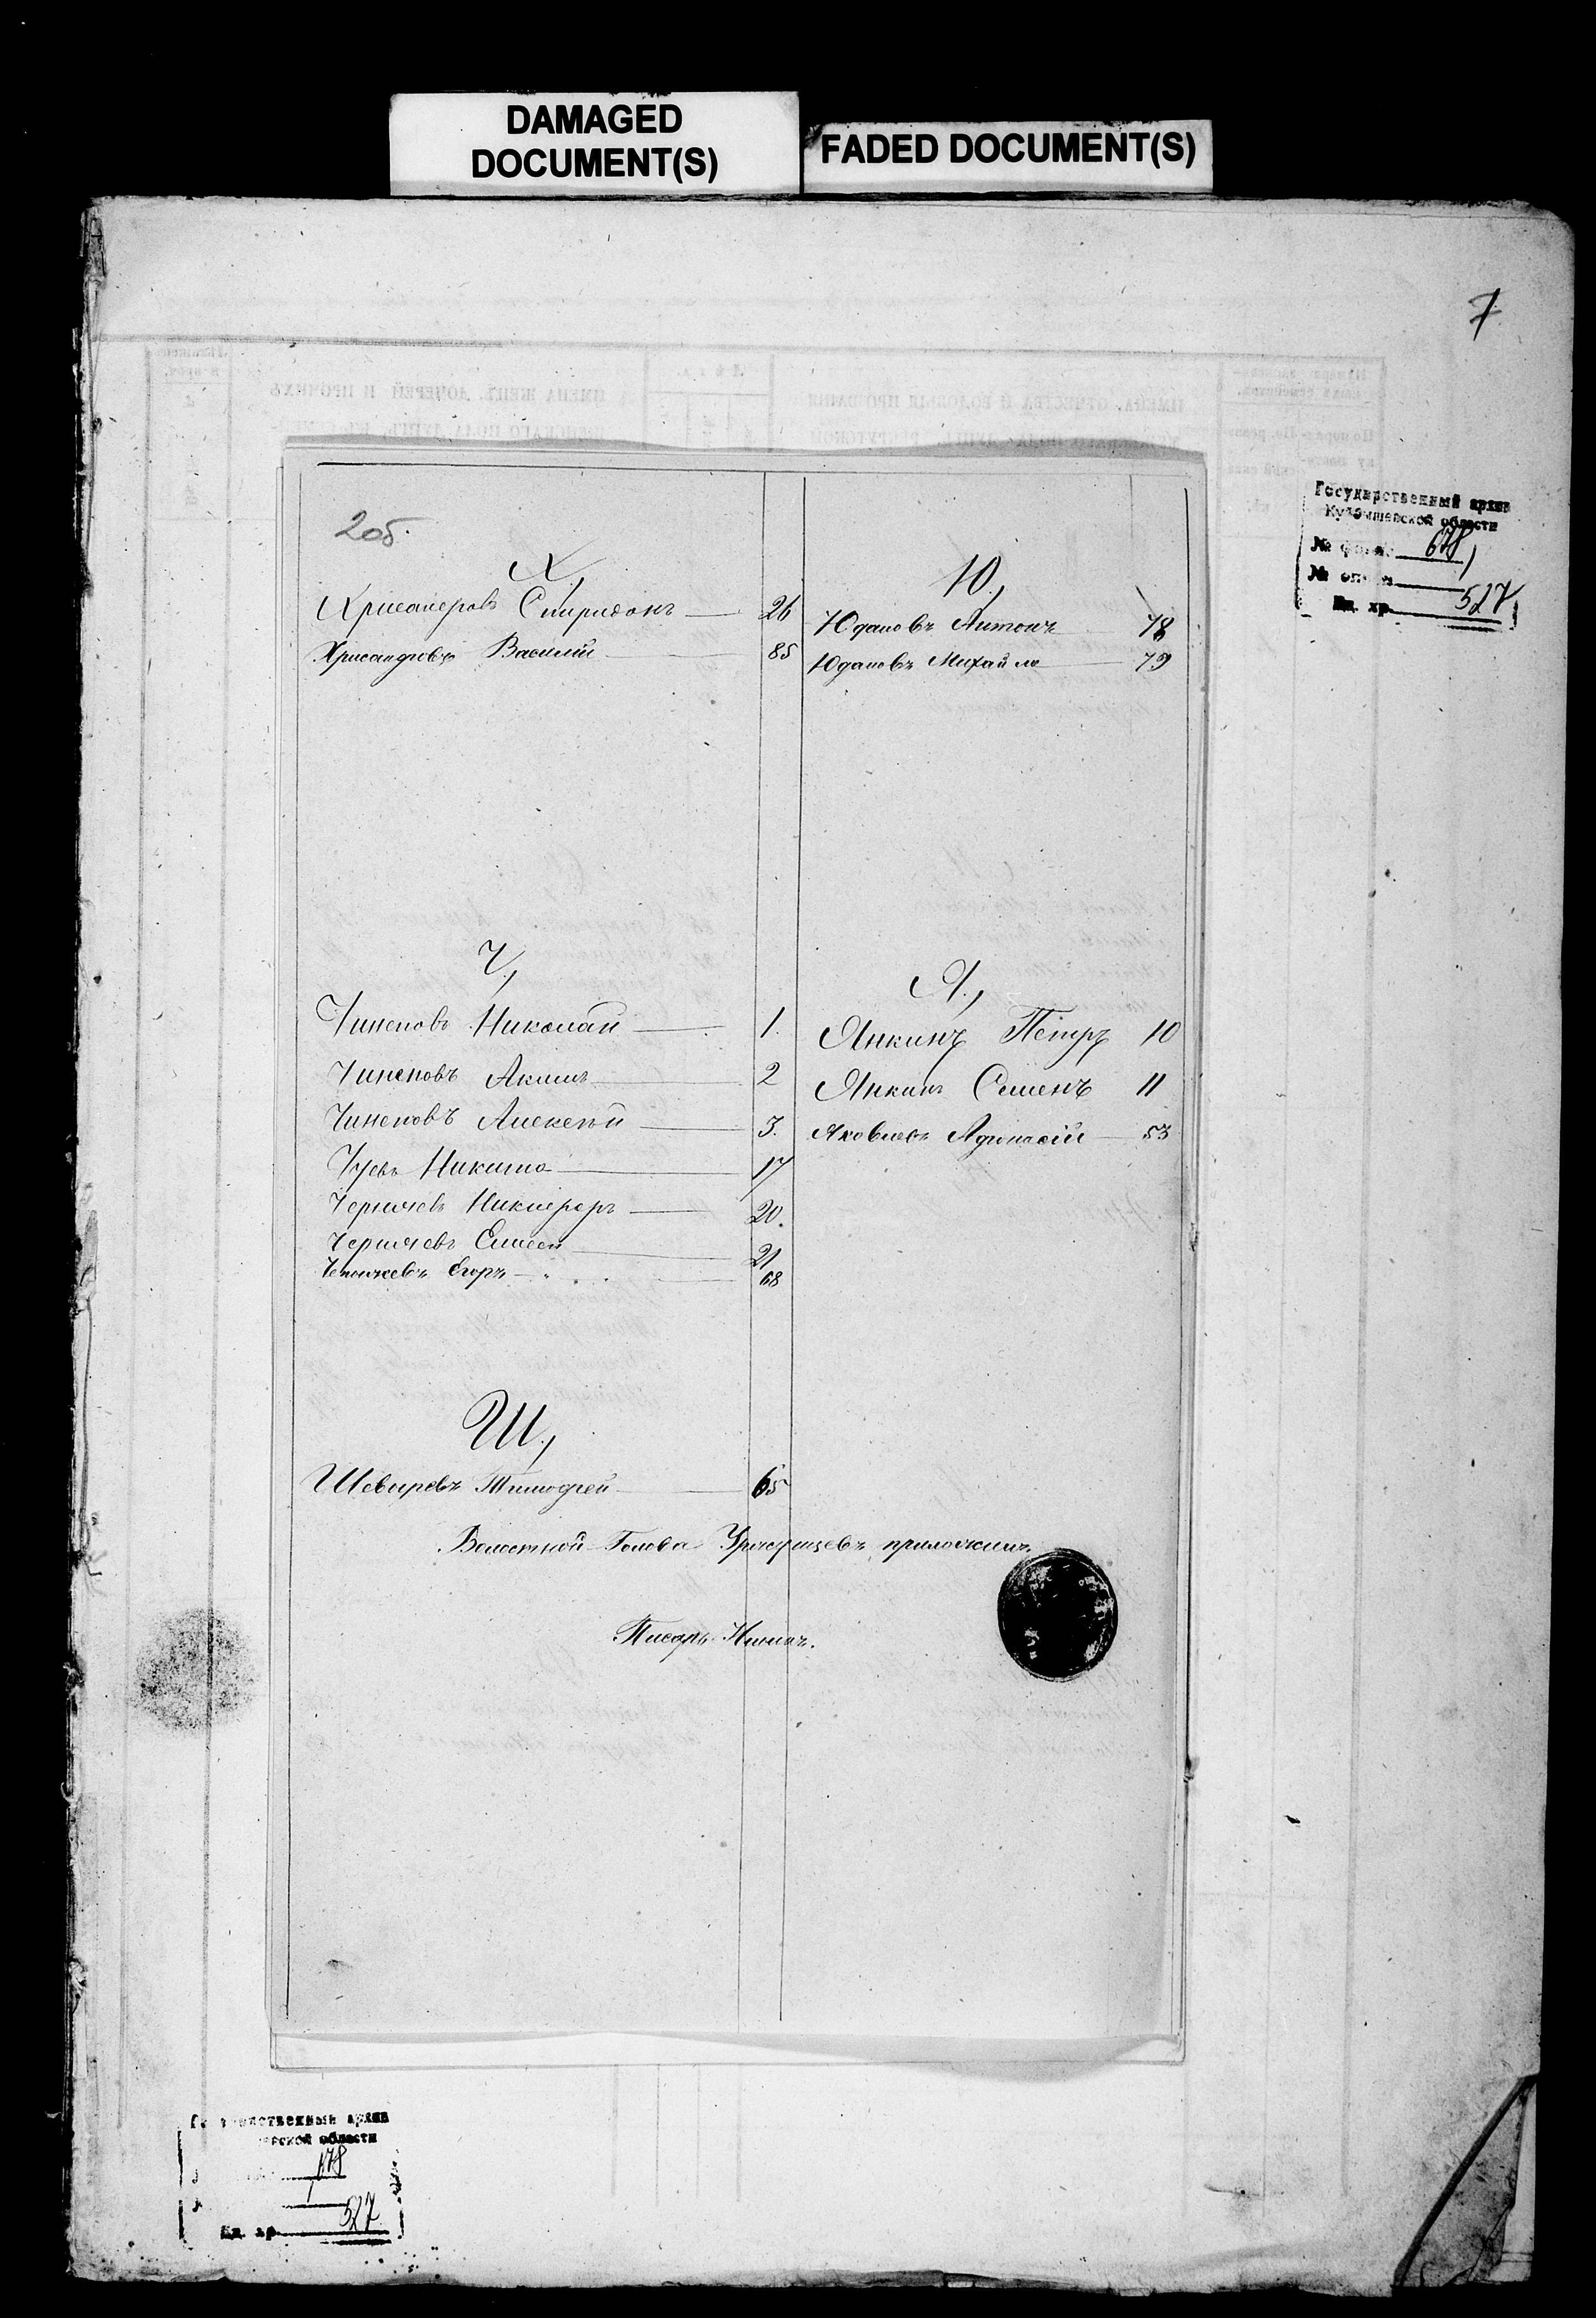 DAMAGED
DOCUMENT(S)
FADED DOCUMENT(S)
7
Государственный архив
Куйбышевской области
№ фонда 678
№ описи 1
Ед. хр. 527
205.
Х.,
Спиридонъ 26
Хрисанфовъ Василій 85
Ч.,
Чиненовъ Николай 1.
Чиненовъ Акимъ 2
Чиненовъ Алексѣй 3.
Никита 17
Никифоръ 20.
Елисей 21
Егоръ 68
Ш.,
Шевыревъ Тимофей 65
Волостной Голова приложилъ.
Писарь
Ю.,
Юдановъ Антонъ 78
Юдановъ Михайло 79
Я.,
Янкинъ Петръ 10
Янкинъ Семенъ 11
Яковлевъ Афонасій 53
Государственный архив
области
678
1
Ед. хр. 527